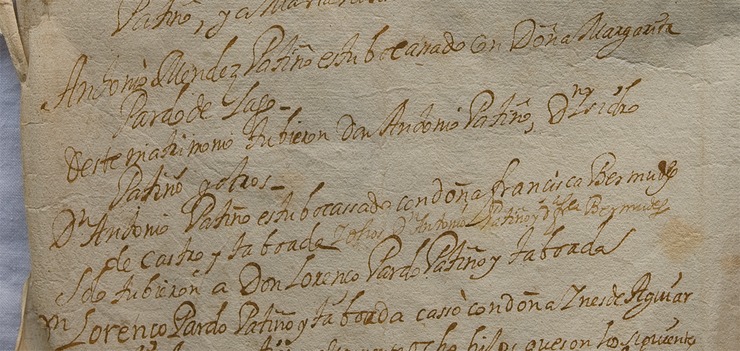 Patiño, y a Maria
Antonio Mendez Patiño estubo casado con Doña Margarita
Pardo de Lago_
deste matrimonio tubieron Don Antonio Patiño, Dn Isidro
Patiño y otros_
Dn Antonio Patiño estubo cassado con doña francisca Bermudez
de castro y taboada y otros Dn Antonio Patiño y Bermudez
Solo tubieron a Don Lorenco Pardo Patiño y taboada
Dn Lorenco Pardo Patiño y taboada cassò con doña Ines de Aguiar
ocho hijos que son los siguientes